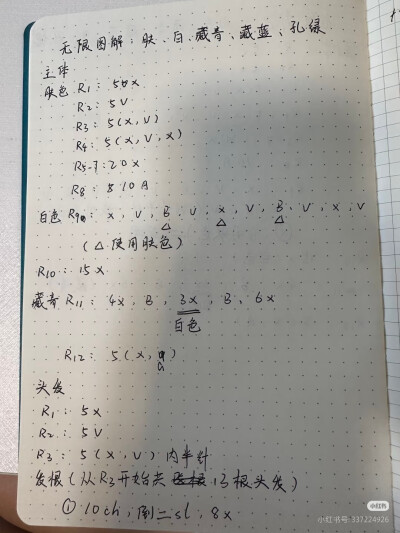 无限图解：肤、白、藏青、藏蓝、孔绿
主体
肤色 R1：5x
R2：5V
R3：5(x,V)
R4：5(x,V,x)
R5-7：20x
R8：10A
白色 R9：x,V,B,V,x,V,B,V,x,V
(△使用肤色)
R10：15x
藏青 R11：4x,B,3x,B,6x
白色
R12：5(x, )
头发
R1：5x
R2：5V
R3：5(x,V)内半针
发根(从R3开始共13根头发)
①10ch,倒二sl,8x
小红书
小红书号:337224926